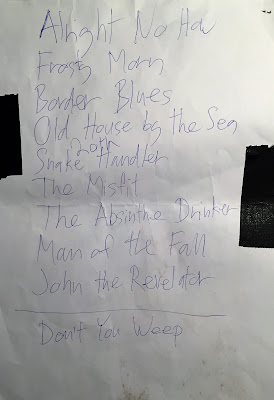 Alright No How
Frosty Morn
Border Blues
Old House by the Sea
Snake Handler
The Misfit
The Absinthe Drinker
Man of the Fall
John the Revelator
Don't You Weep